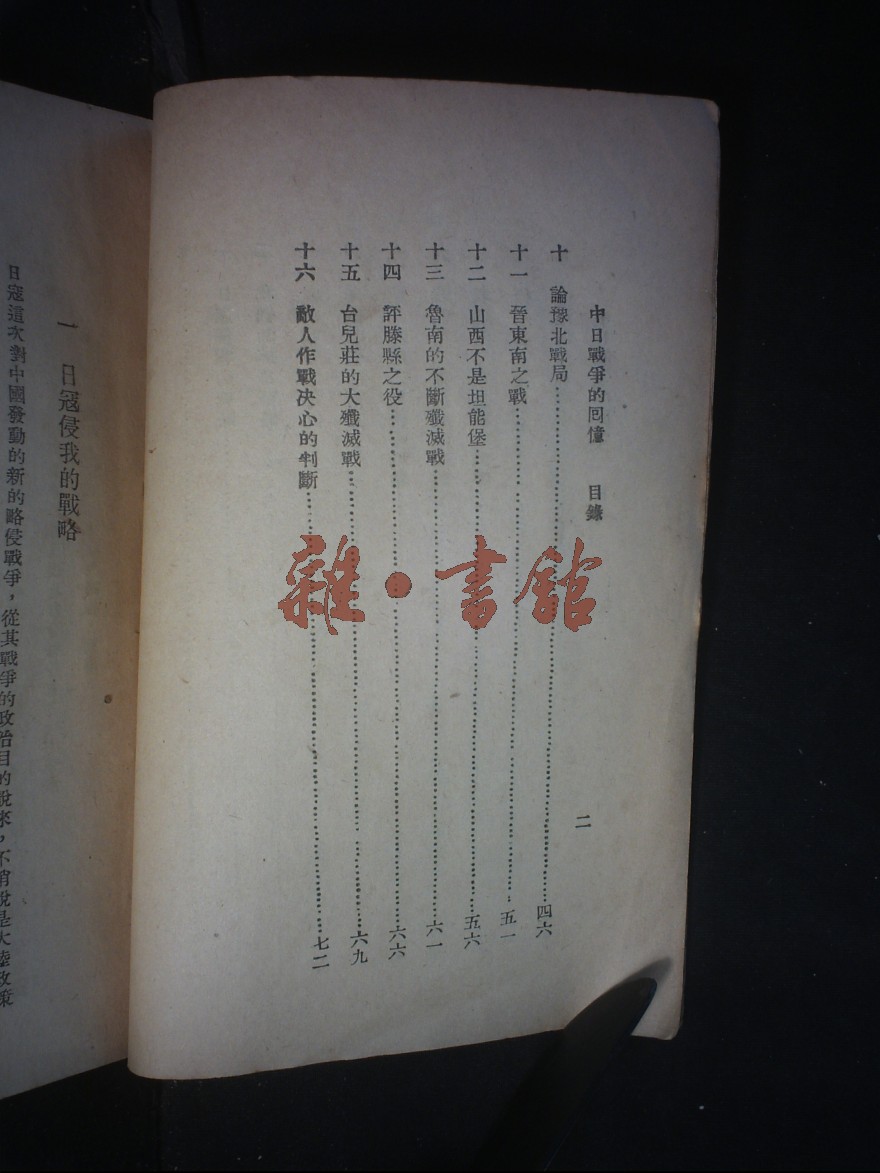 中日戰爭的回憶 目錄 二
十 論豫北戰局……四六
十一 晉東南之戰……五一
十二 山西不是坦能堡……五六
十三 魯南的不斷殲滅戰……六一
十四 評滕縣之役……六六
十五 台兒莊的大殲滅戰……六九
十六 敵人作戰决心的判斷……七二
雜·書館
一 日寇侵我的戰略
日寇這次對中國發動的新的略侵戰爭，從其戰爭的政治目的說來，不消說是大陸政策